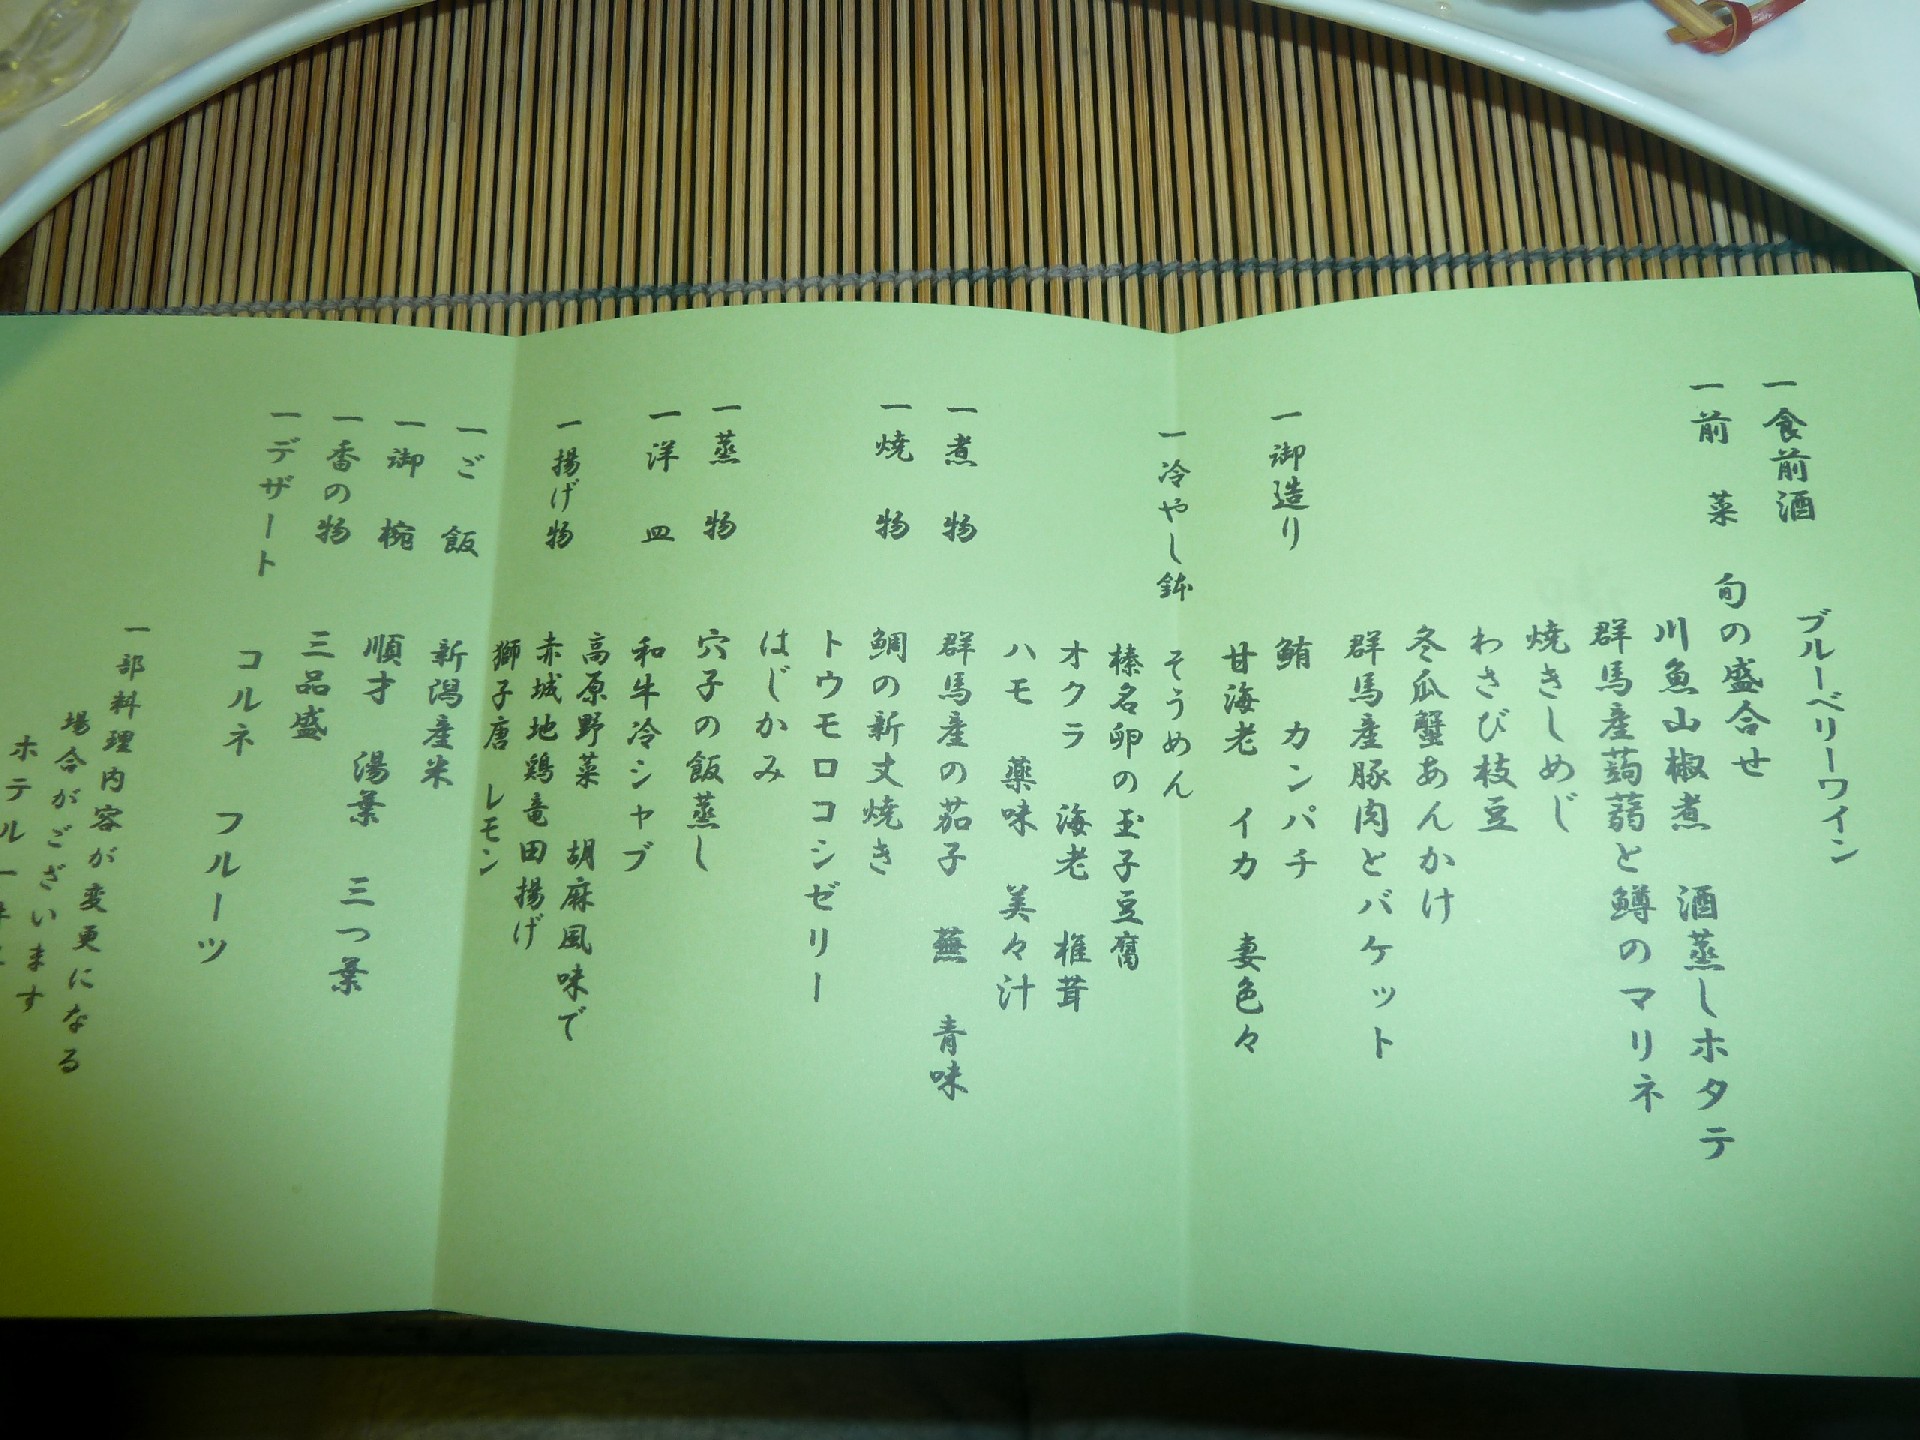 一 食前酒 ブルーベリーワイン
一 前 菜 旬の盛合せ
川魚山椒煮 酒蒸しホタテ
群馬産蒟蒻と鱒のマリネ
焼きしめじ
わさび枝豆
冬瓜蟹あんかけ
群馬産豚肉とバケット
一 御造り 鮪 カンパチ
甘海老 イカ 妻色々
一 冷やし鉢 そうめん
榛名卵の玉子豆腐
オクラ 海老 椎茸
ハモ 薬味 美々汁
一 煮 物 群馬産の茄子 蕪 青味
一 焼 物 鯛の新丈焼き
トウモロコシゼリー
はじかみ
一 蒸 物 穴子の飯蒸し
一 洋 皿 和牛冷シャブ
高原野菜 胡麻風味で
一 揚げ物 赤城地鶏竜田揚げ
獅子唐 レモン
一 ご 飯 新潟産米
一 御 椀 順才 湯葉 三つ葉
一 香の物 三品盛
一 デザート コルネ フルーツ
一部料理内容が変更になる
場合がございます
ホテル一